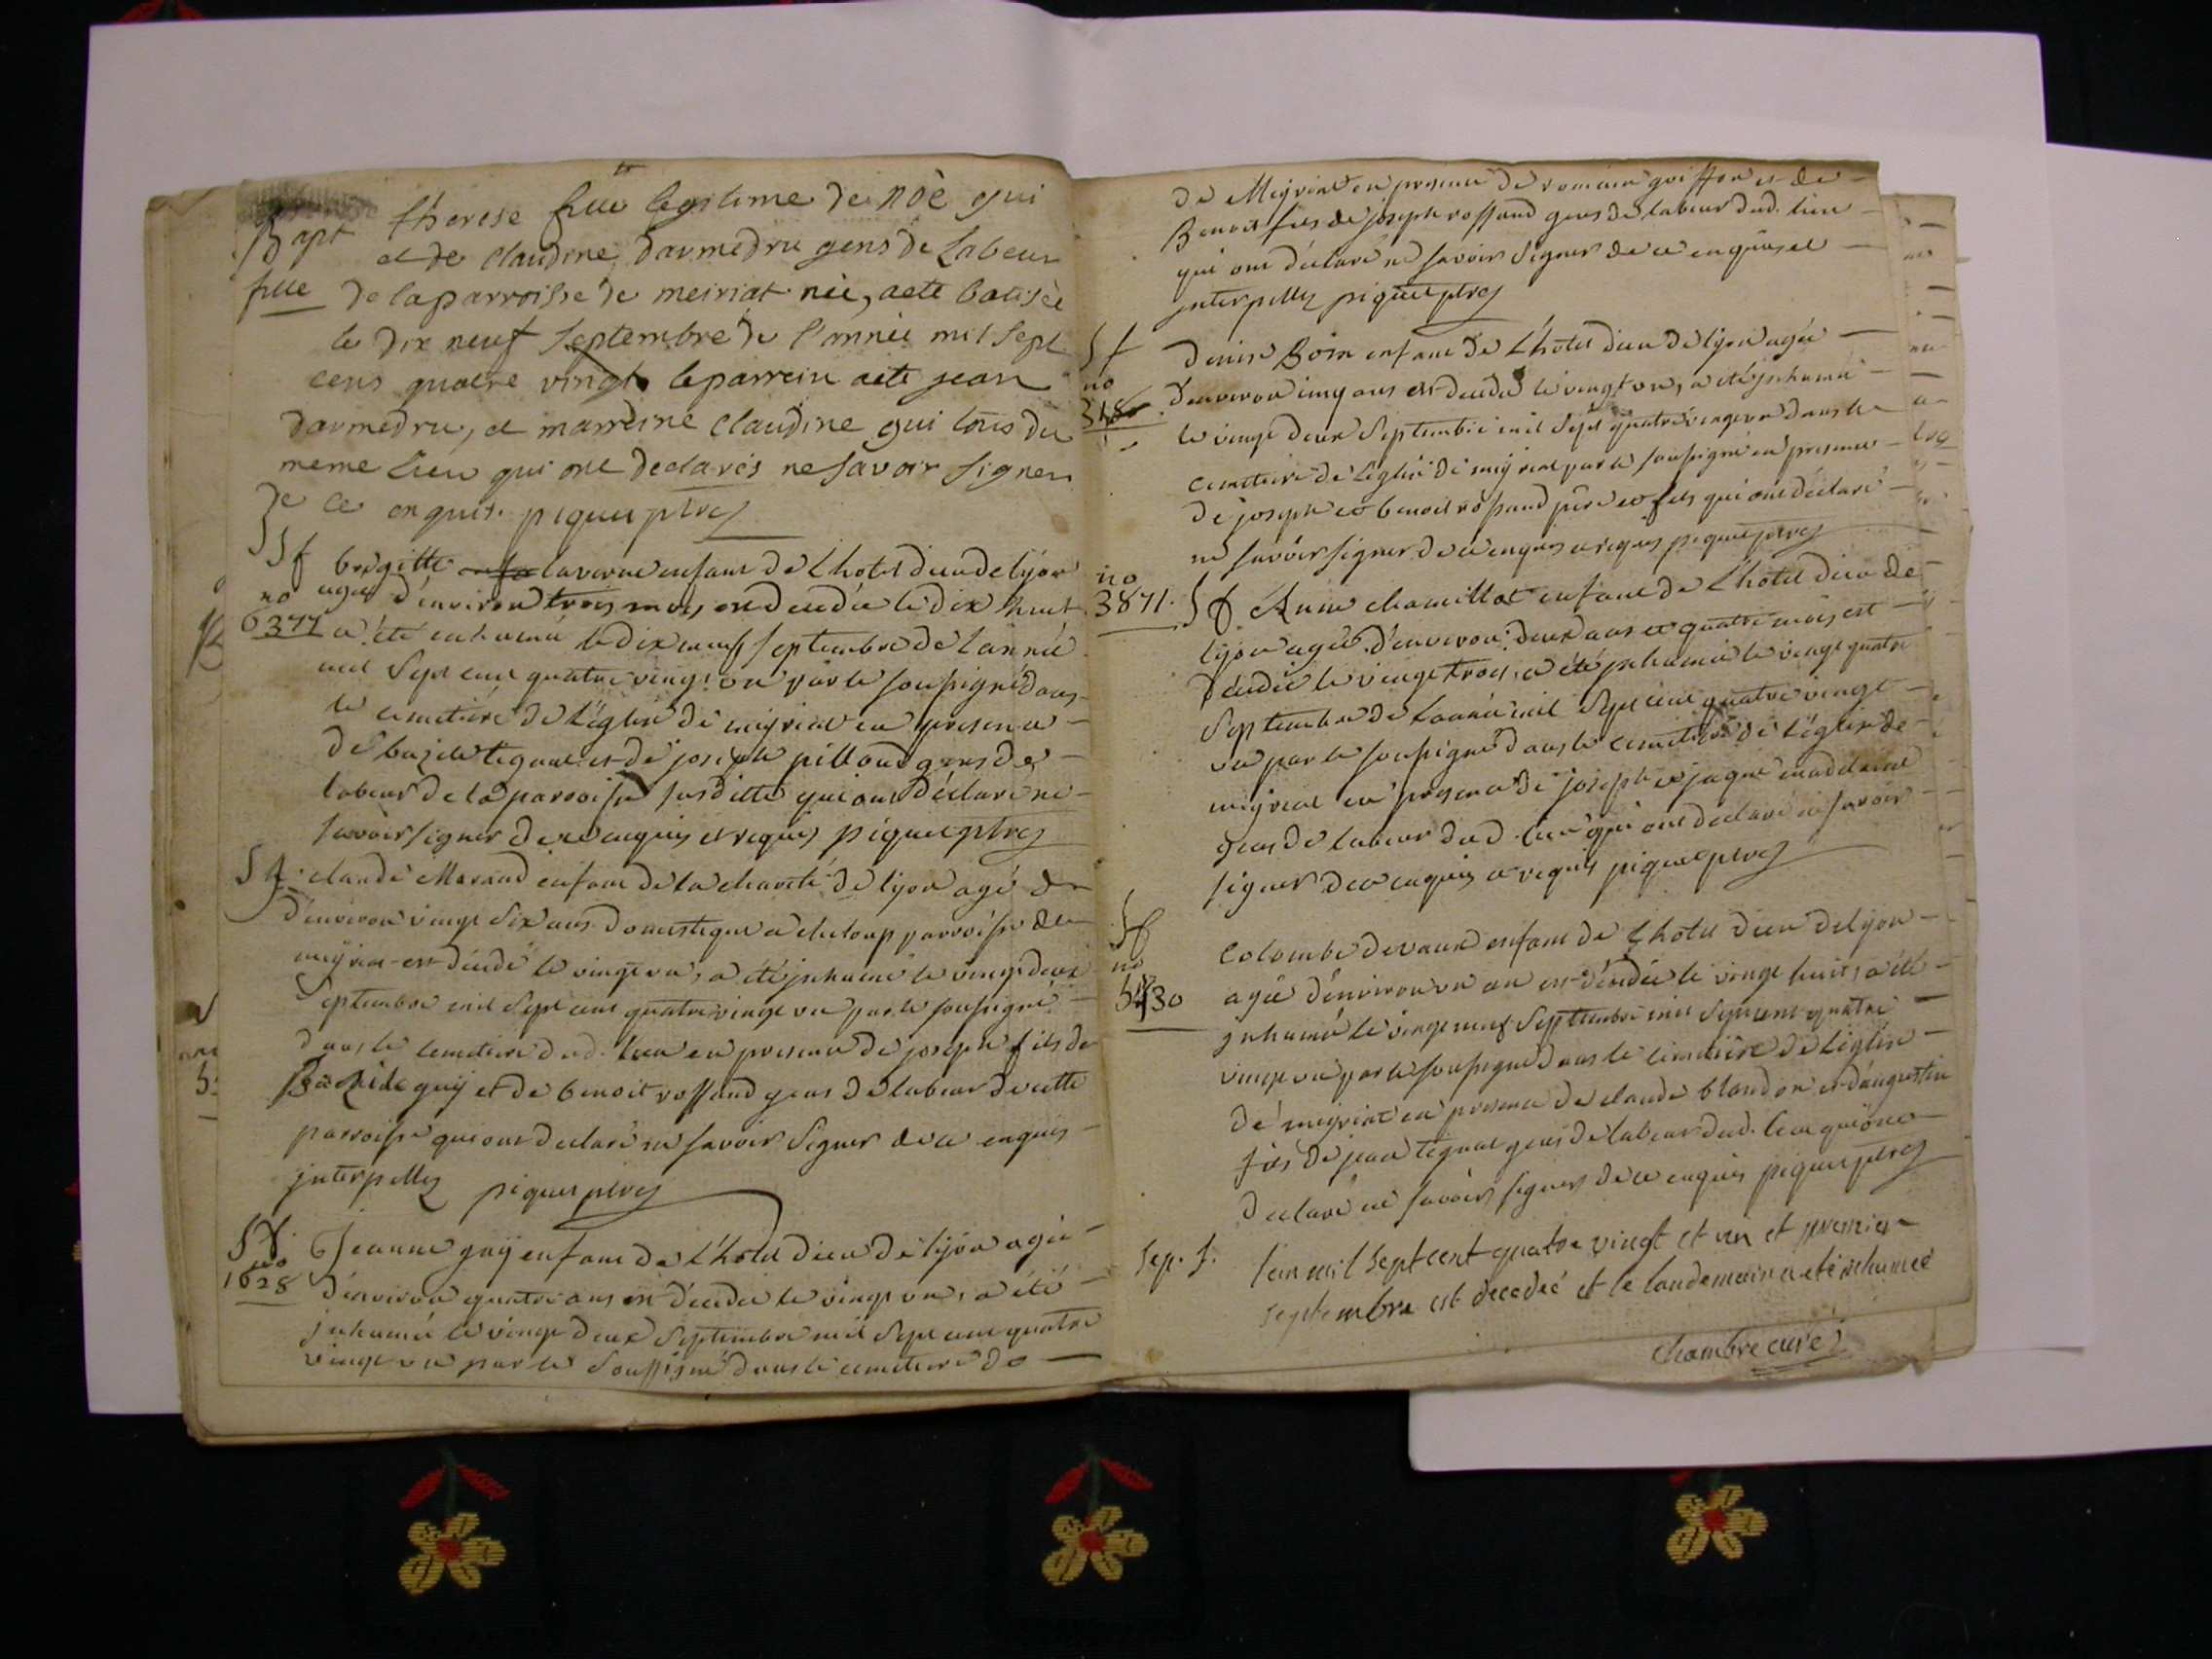 Bapt therese fille legitime de noè gui
et de claudine darmedru gens de Labeur
fille de la parroisse de meiriat née, a eté batisée
le dix neuf septembre de l'année mil sept
cens quatre vingt le parrein a eté jean
darmedru, et marreine claudine gui tous du
meme lieu qui ont declarés ne savoir signer
de ce enquis. piquet ptre
Sf brigitte laverne enfant de L'hotel dieu de lyon
no agée d'environ trois mois est decedée le dix huit
6377 a été inhumée le dix neuf septembre de L'année
mil Sept cent quatre vingt un par le soussigné dans
le cimetiére de L'église de meyriat en presence
de bazile tignat et de joseph pilloud gens de
labeur de la parroisse susditte qui ont déclaré ne
savoir signer de ce enquis et requis piquet ptre
Sf. claude Morand enfant de la charité de lyon agé
d'environ vingt Six ans domestique a chiloup parroisse de
meyriat est décédé le vingt un, a été jnhumé le vingt deux
Septembre mil Sept cent quatre vingt un par le soussigné
dans le cemetiere dud. lieu en presence de joseph fils de
guy et de benoit rossand gens de labeur de cette
parroisse qui ont declaré ne savoir Signer de ce enquis
jnterpellez piquet ptre
Sf. Jeanne guy enfant de L'hotel dieu de lyon agée
no
1628 d'environ quatre ans est décédée le vingt un, a été
jnhumée le vingt deux Septembre mil Sept cent quatre
vingt un par le Soussigné dans le cemetiere de
de Meyriat en presence de romain griffon et de
Benoit fils de joseph rossand gens de labeur dud. lieu
qui ont déclaré ne savoir signer de ce enquis et
jnterpellez piquet ptre
Sf denise Boin enfant de L'hotel dieu de lyon agée
no d'environ cinq ans est decedée le vingt un, a été jnhumée
le vingt deux Septembre mil Sept quatre vingt un dans le
cemetiere de L'église de meyriat par le soussigné en presence
de joseph et benoit rossand père et fils qui ont déclaré
ne savoir signer de ce enquis et requis piquet ptre
no
3871. Sf. Anne chamillat enfant de L'hotel dieu de
lyon agée d'environ deux ans et quatre mois est
décédée le vingt trois, a été jnhumée le vingt quatre
Septembre de L'année mil Sept cent quatre vingt
un par le soussigné dans le cemetiere de L'église de
meyriat en presence de joseph et jaque madelaine
gens de labeur dud. lieu qui ont declaré ne savoir
signer de ce enquis et requis piquet ptre
Sf colombe devaux enfant de L'hotel dieu de lyon
no
agée d'environ un an est décédée le vingt huit, a été
jnhumée le vingt neuf Septembre mil Sept cent quatre
vingt un par le soussigné dans le cimetiere de L'église
de meyriat en presence de claude blandon et d'augustin
fils de jean tignat gens de labeur dud. lieu qui ont
declaré ne savoir signer de ce enquis piquet ptre
Sep. f. l'an mil sept cent quatre vingt et un et premier
septembre est decedeé et le landemain a eté inhumeé
chambre curé